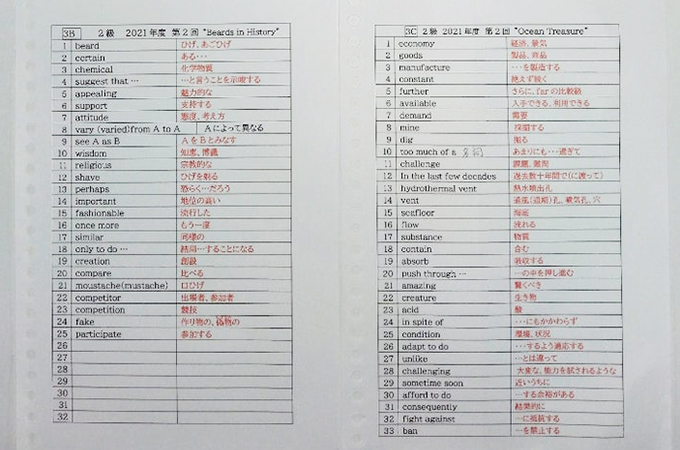 3B 2級 2021年度 第2回 "Beards in History"
1 beard ひげ、あごひげ
2 certain ある…
3 chemical 化学物質
4 suggest that … …と言うことを示唆する
5 appealing 魅力的な
6 support 支持する
7 attitude 態度、考え方
8 vary (varied)from A to A Aによって異なる
9 see A as B AをBとみなす
10 wisdom 知恵、博識
11 religious 宗教的な
12 shave ひげを剃る
13 perhaps 恐らく…だろう
14 important 地位の高い
15 fashionable 流行した
16 once more もう一度
17 similar 同様の
18 only to do … 結局…することになる
19 creation 創設
20 compare 比べる
21 moustache(mustache) 口ひげ
22 competitor 出場者、参加者
23 competition 競技
24 fake 作り物の、偽物の
25 participate 参加する
26
27
28
29
30
31
32
3C 2級 2021年度 第2回 "Ocean Treasure"
1 economy 経済、景気
2 goods 製品、商品
3 manufacture …を製造する
4 constant 絶えず続く
5 further さらに、farの比較級
6 available 入手できる、利用できる
7 demand 需要
8 mine 採掘する
9 dig 掘る
10 too much of a 名詞 あまりにも…過ぎて
11 challenge 課題、難問
12 In the last few decades 過去数十年間で(に渡って)
13 hydrothermal vent 熱水噴出孔
14 vent 通風(道筋)孔、噴気孔、穴
15 seafloor 海底
16 flow 流れる
17 substance 物質
18 contain 含む
19 absorb 吸収する
20 push through … …の中を押し進む
21 amazing 驚くべき
22 creature 生き物
23 acid 酸
24 in spite of …にもかかわらず
25 condition 環境、状況
26 adapt to do …するよう適応する
27 unlike …とは違って
28 challenging 大変な、能力を試されるような
29 sometime soon 近いうちに
30 afford to do …する余裕がある
31 consequently 結果的に
32 fight against …に抵抗する
33 ban …を禁止する